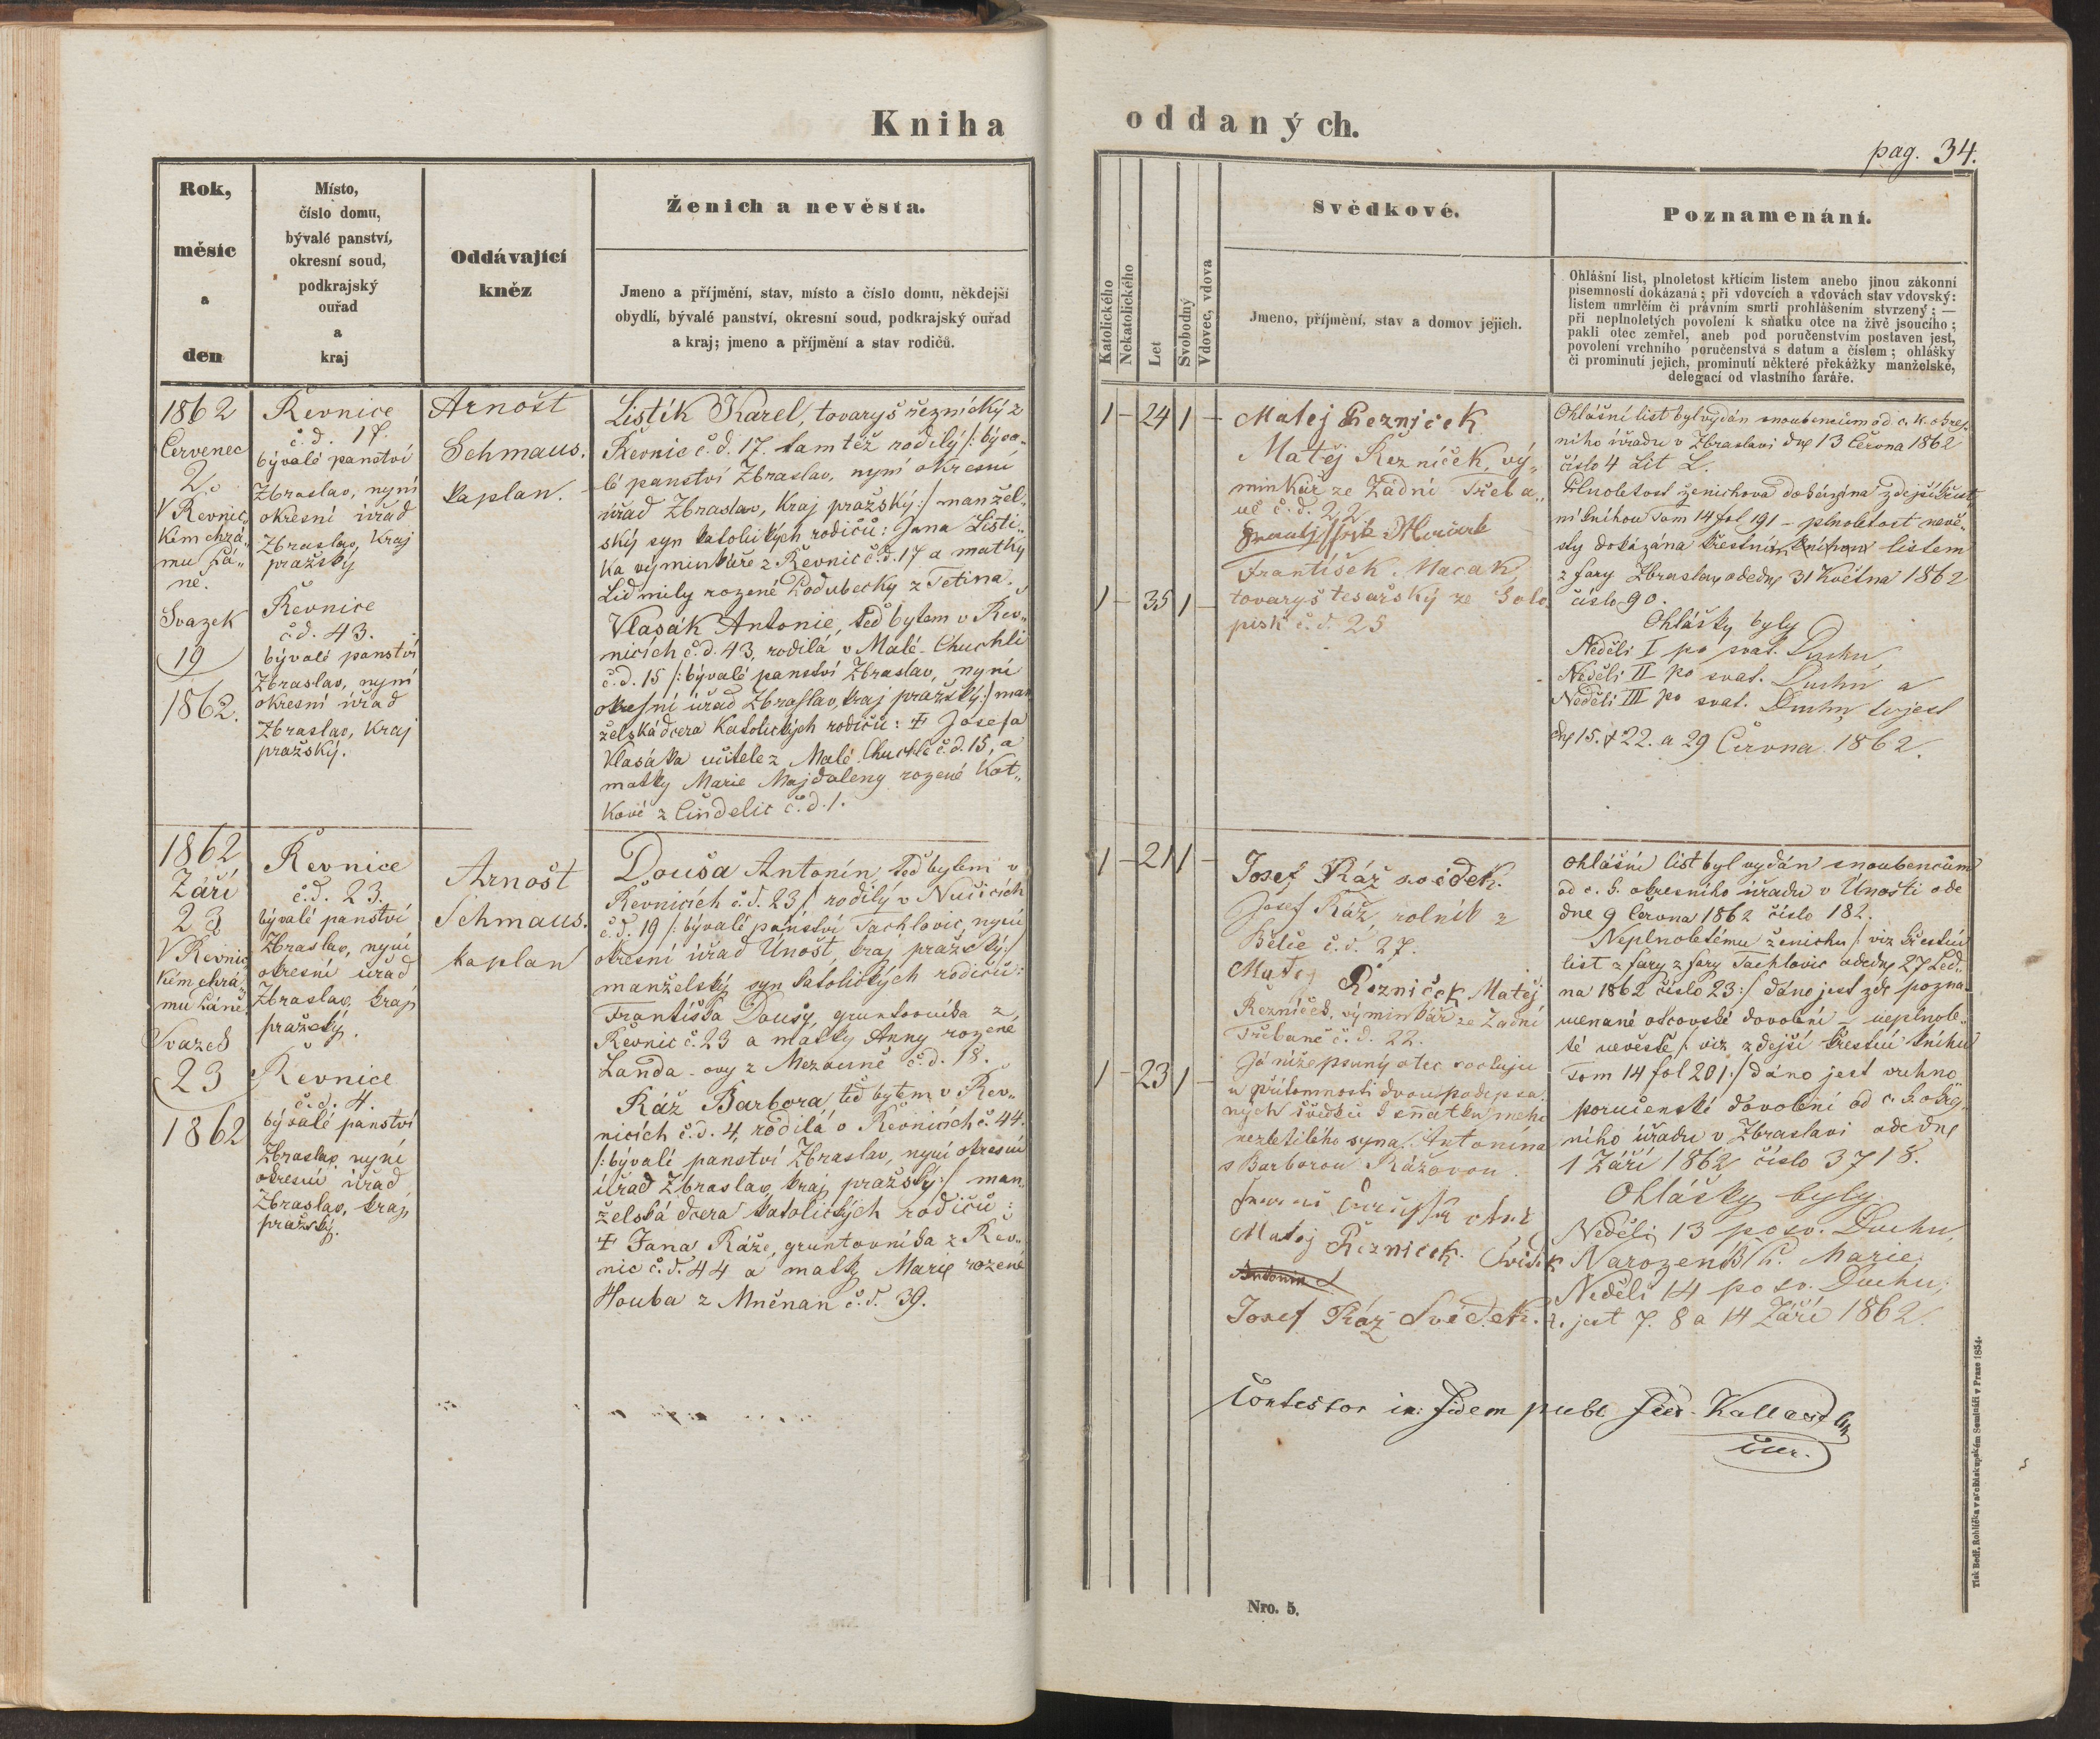 Kniha
oddaných.
pag. 34.
Rok,
měsíc
a
den
Místo,
číslo domu,
bývalé panství,
okresní soud,
podkrajský
ouřad
a
kraj
Oddávající
kněz
Ženich a nevěsta.
Jmeno a příjmění, stav, místo a číslo domu, někdejší
obydlí, bývalé panství, okresní soud, podkrajský ouřad
a kraj; jmeno a příjmění a stav rodičů.
Katolického
Nekatolického
Let
Svobodný
Vdovec, vdova
Svědkové.
Jmeno, příjmění, stav a domov jejich.
Poznamenání.
Ohlášní list, plnoletost křtícím listem anebo jinou zákonní
písemností dokázaná; při vdovcích a vdovách stav vdovský:
listem umrlčím či právním smrti prohlášením stvrzený; —
při neplnoletých povolení k sňatku otce na živě jsoucího;
pakli otec zemřel, aneb pod poručenstvím postaven jest,
povolení vrchního poručenstva s datum a číslem; ohlášky
či prominutí jejich, prominutí některé překážky manželské,
delegací od vlastního faráře.
1862
Červenec
2.
V Řevnic„
kém chrá„
mu Pá„
ně.
Svazek
19
1862.
Řevnice
č.d. 17.
bývalé panství
Zbraslav, nyní
okresní úřad
Zbraslav, Kraj
pražský
Řevnice
č.d. 43.
bývalé panství
Zbraslav, nyní
okresní úřad
Zbraslav, Kraj
pražský.
Arnošt
Schmaus.
kaplan.
Listík Karel, tovaryš řeznický z
Řevnic č.d. 17. tamtéž rodilý /: býva„
lé panství Zbraslav, nyní okresní
úřad Zbraslav, Kraj pražský :/ manžel„
ský syn katolických rodičů: Jana Listí„
ka výminkáře z Řevnic č.d. 17 a matky
Lidmily rozené Podubecky z Tetína.
Vlasák Antonie, teď bytem v Řev„
nicích č.d. 43, rodilá v Malé Chuchli
č.d. 15 /: bývalé panství Zbraslav, nyní
okresní úřad Zbraslav, kraj pražský :/ man
želská dcera Katolických rodičů: † Josefa
Vlasáka učitele z Malé Chuchle č.d. 15, a
matky Marie Majdaleny rozené Kot„
kové z Čindelic č.d. 1.
1 – 24 1 –
1 – 35 1 –
Matej Řezniček
Matěj Řezníček, vý„
minkář ze Zádní Třeba„
ně č.d. 22
František Macak
tovaryš tesařský ze Solo
pisk č.d. 25
Ohlášní list byl vydán snoubencům od c. k. okres„
ního úřadu v Zbraslavi dne 13 Června 1862
číslo 4 Lit L.
Plnoletost ženichova dokázána zdejší křest„
ní knihou Tom 14 fol 191 – plnoletost nevě„
sty dokázána křestním listem
z fary Zbraslav ode dne 31 Května 1862
číslo 90.
Ohlášky byly
Neděli I po svat. Duchu,
Neděli II po svat. Duchu a
Neděli III po svat. Duchu, to jest
dne 15. 22. a 29 Června 1862.
1862
Září
23
V Řevnic
kém chrá„
mu Páně
Svazek
23
1862
Řevnice
č.d. 23.
bývalé panství
Zbraslav, nyní
okresní úřad
Zbraslav, kraj
pražský.
Řevnice
č.d. 4.
bývalé panství
Zbraslav, nyní
okresní úřad
Zbraslav, kraj
pražský.
Arnošt
Schmaus.
kaplan
Douša Antonín, teď bytem v
Řevnicích č.d. 23 /. rodilý v Nučicích
č.d. 19 /: bývalé panství Tachlovic, nyní
okresní úřad Únošt, kraj pražský :/
manželský syn katolických rodičů:
Františka Dousy, gruntovníka z
Řevnic č. 23 a matky Anny rozené
Landa-ovy z Mezouně č.d. 18.
Ráž Barbora, teď bytem v Řev„
nicích č.d. 4, rodilá v Řevnicích č. 44.
/: bývalé panství Zbraslav, nyní okresní
úřad Zbraslav, kraj pražský :/ man„
želská dcera katolických rodičů:
† Jana Ráže, gruntovníka z Řev„
nic č.d. 44 a matky Marie rozené
Houba z Mněnan č.d. 39.
1 – 21 1 –
1 – 23 1 –
Josef Ráž svědek.
Josef Ráž, rolník z
Bělče č.d. 27.
Matej Řezniček Matěj
Řezníček, výminkář ze Zadní
Třebaně č.d. 22.
Já nížepsaný otec svoluju
u přítomnosti dvou podepsa„
ných svědků k sňatku mého
nezletilého syna Antonína
s Barborou Rážovou.
Matej Řezniček. Svědek
Antonin
Josef Ráz Svědek.
Ohlášní list byl vydán snoubencům
od c. k. okresního úřadu v Únošti ode
dne 9 Června 1862 číslo 182.
Neplnoletému ženichu /: viz křestní
list z fary z fary Tachlovic ode dne 27 Led„
na 1862 číslo 23 :/ dáno jest zde pozna„
menané otcovské dovolení – neplnole„
té nevěstě /: viz zdejší křestní knihu
Tom 14 fol 201 :/ dáno jest vrchno
poručenské dovolení od c. k. okres„
ního úřadu v Zbraslavi ode dne
1 Září 1862 číslo 3718.
Ohlášky byly
Neděli 13 po sv. Duchu,
Narození B. P. Marie
Neděli 14 po sv. Duchu,
t. jest 7. 8 a 14 Září 1862.
Contestor in fidem publ.
Nro. 5.
Tisk Bedř. Rohlíčka v arcibiskupském Semináři v Praze 1854.